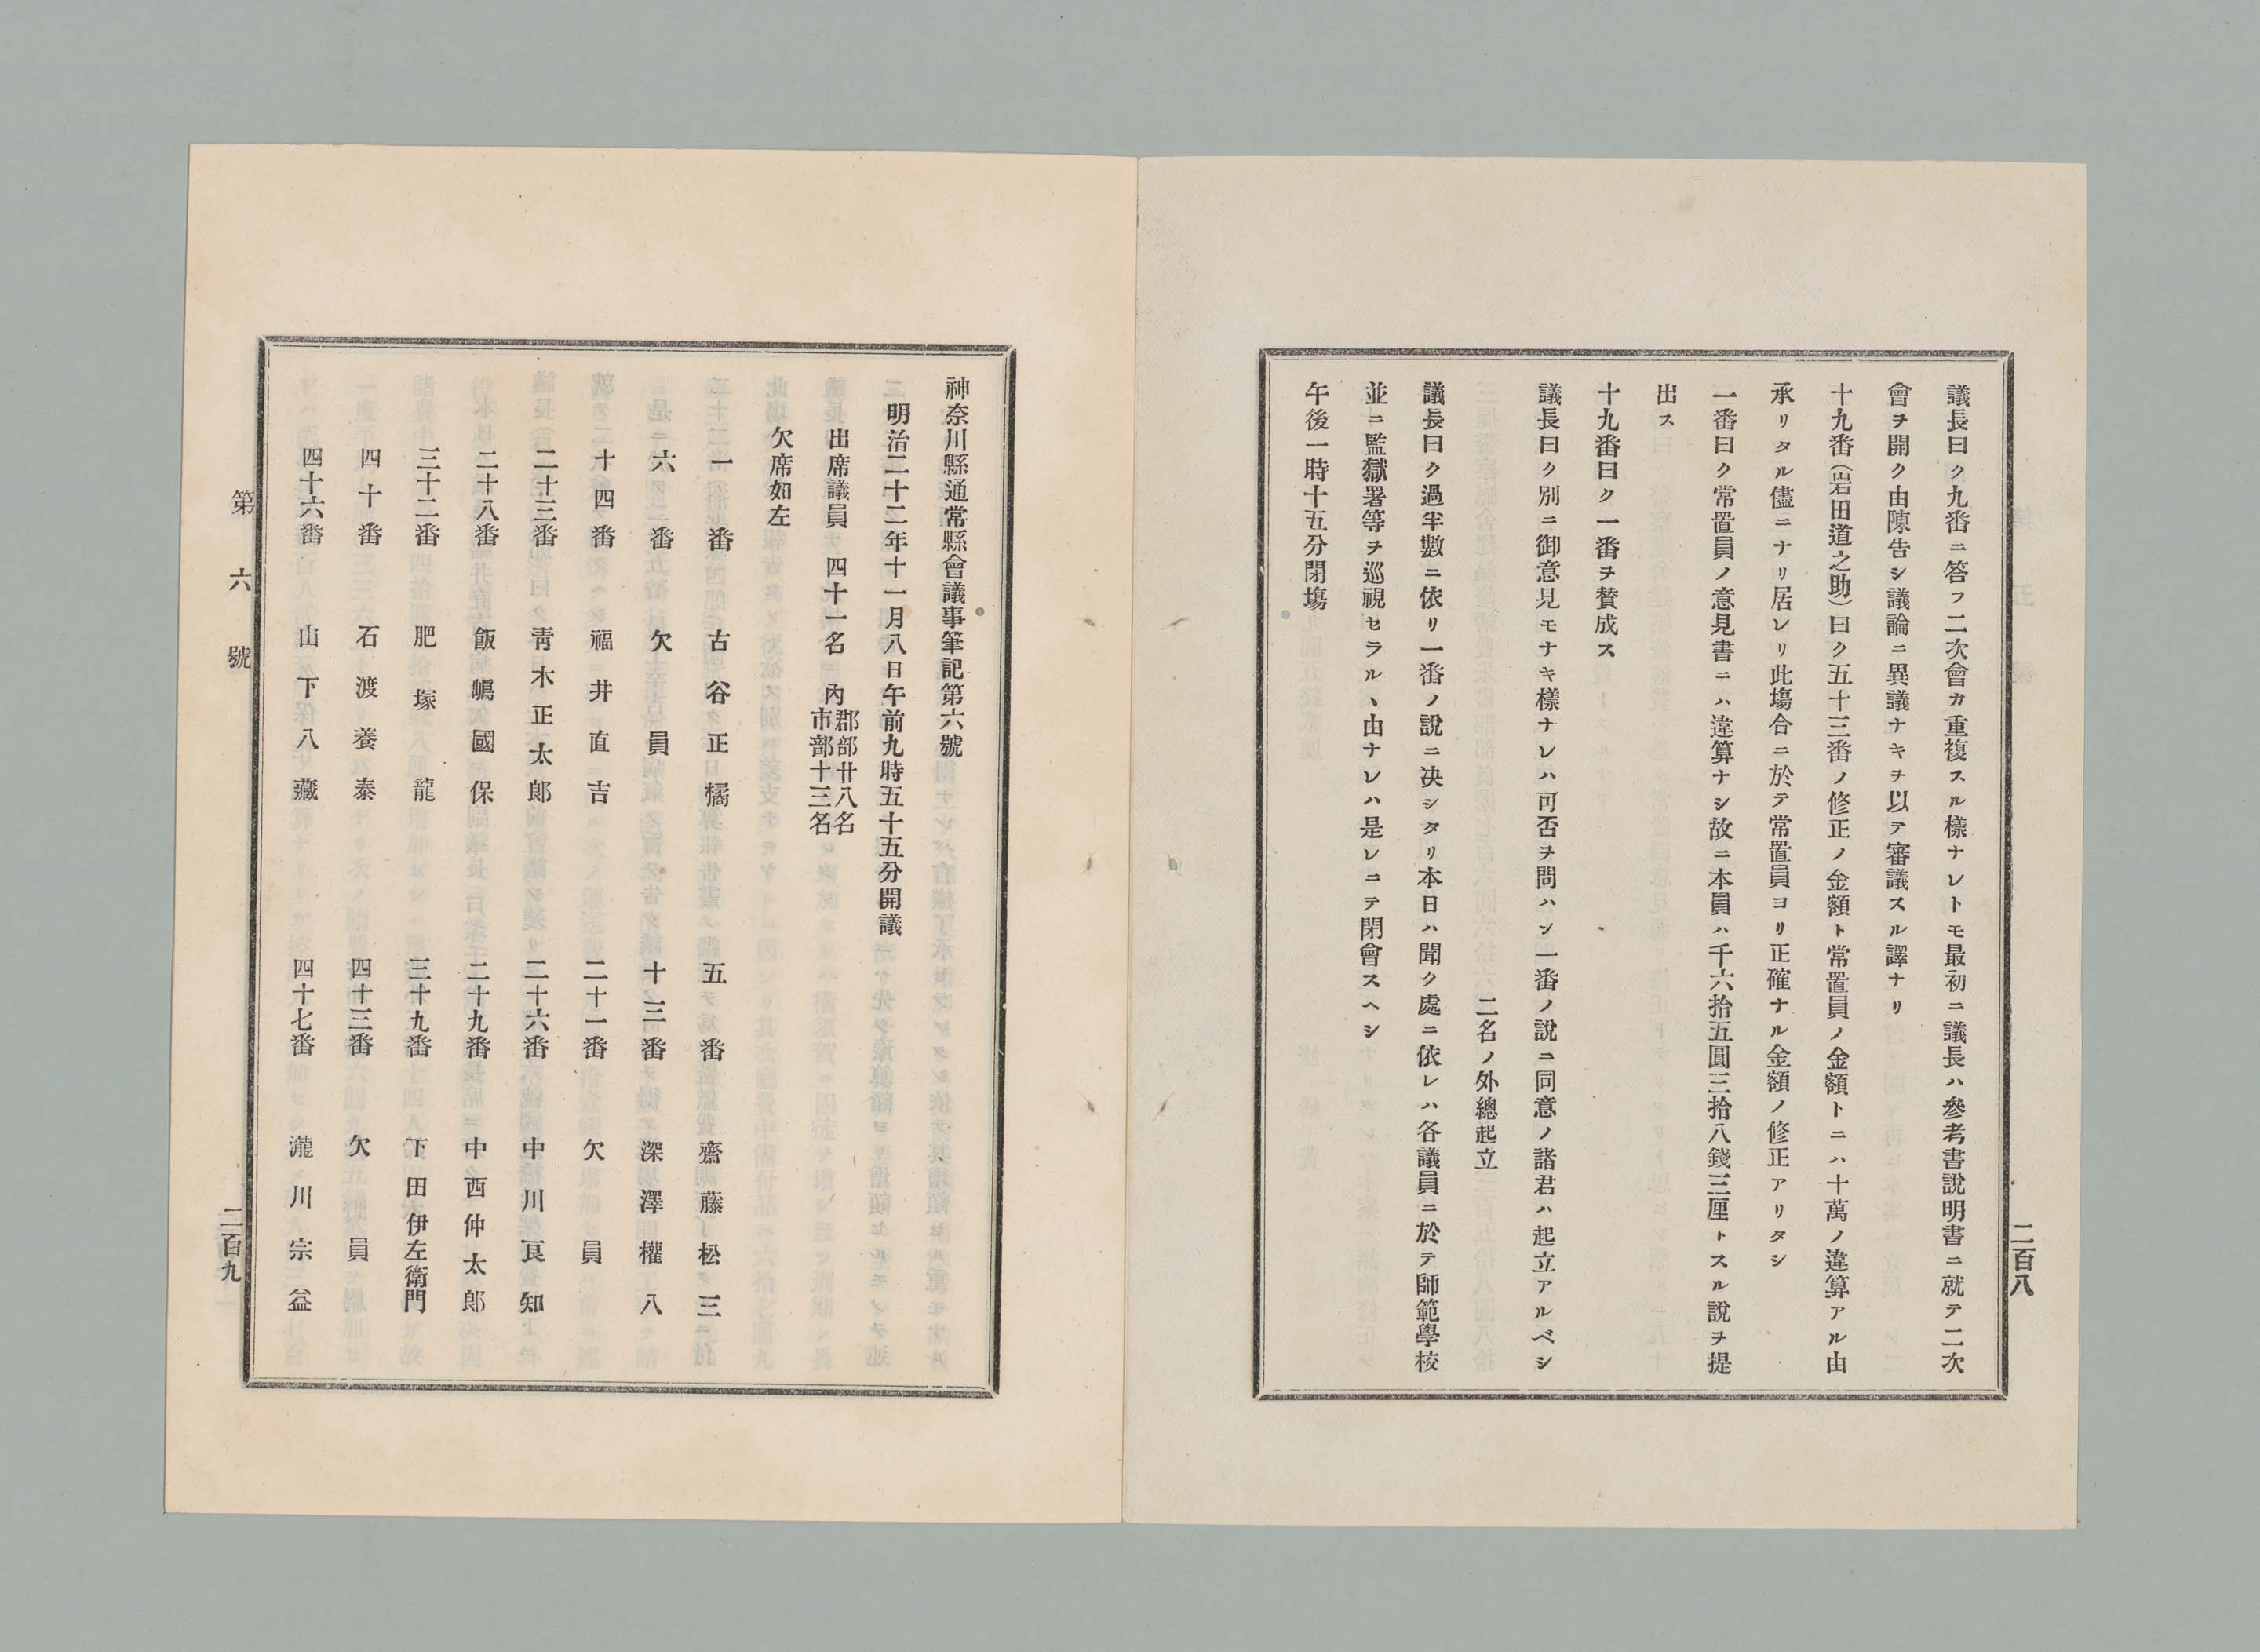 二百八
議長曰ク九番ニ答フ二次會カ重複スル樣ナレトモ最初ニ議長ハ參考書說明書ニ就テ二次
會ヲ開ク由陳告シ議論ニ異議ナキヲ以テ審議スル譯ナリ
十九番(岩田道之助)曰ク五十三番ノ修正ノ金額ト常置員ノ金額トニハ十萬ノ違算アル由
承リタル儘ニナリ居レリ此塲合ニ於テ常置員ヨリ正確ナル金額ノ修正アリタシ
一番曰ク常置員ノ意見書ニハ違算ナシ故ニ本員ハ千六拾五圓三拾八錢三厘トスル說ヲ提
出ス
十九番曰ク一番ヲ賛成ス
議長曰ク別ニ御意見モナキ樣ナレハ可否ヲ問ハン一番ノ說ニ同意ノ諸君ハ起立アルベシ
二名ノ外總起立
議長曰ク過半數ニ依リ一番ノ說ニ决シタリ本日ハ聞ク處ニ依レハ各議員ニ於テ師範學校
並ニ監獄署等ヲ巡視セラルヽ由ナレハ是レニテ閉會スヘシ
午後一時十五分閉塲
神奈川縣通常縣會議事筆記第六號
明治二十二年十一月八日午前九時五十五分開議
出席議員 四十一名 內 郡部廿八名 市部十三名
欠席如左
一番 古谷正橘 五番 齋藤松三
六番 欠員 十三番 深澤權八
十四番 福井直吉 二十一番 欠員
二十三番 靑木正太郎 二十六番 中川良知
二十八番 飯嶋國保 二十九番 中西仲太郎
三十二番 肥塚龍 三十九番 下田伊左衛門
四十番 石渡養泰 四十三番 欠員
四十六番 山下保八藏 四十七番 瀧川宗益
第六號
二百九